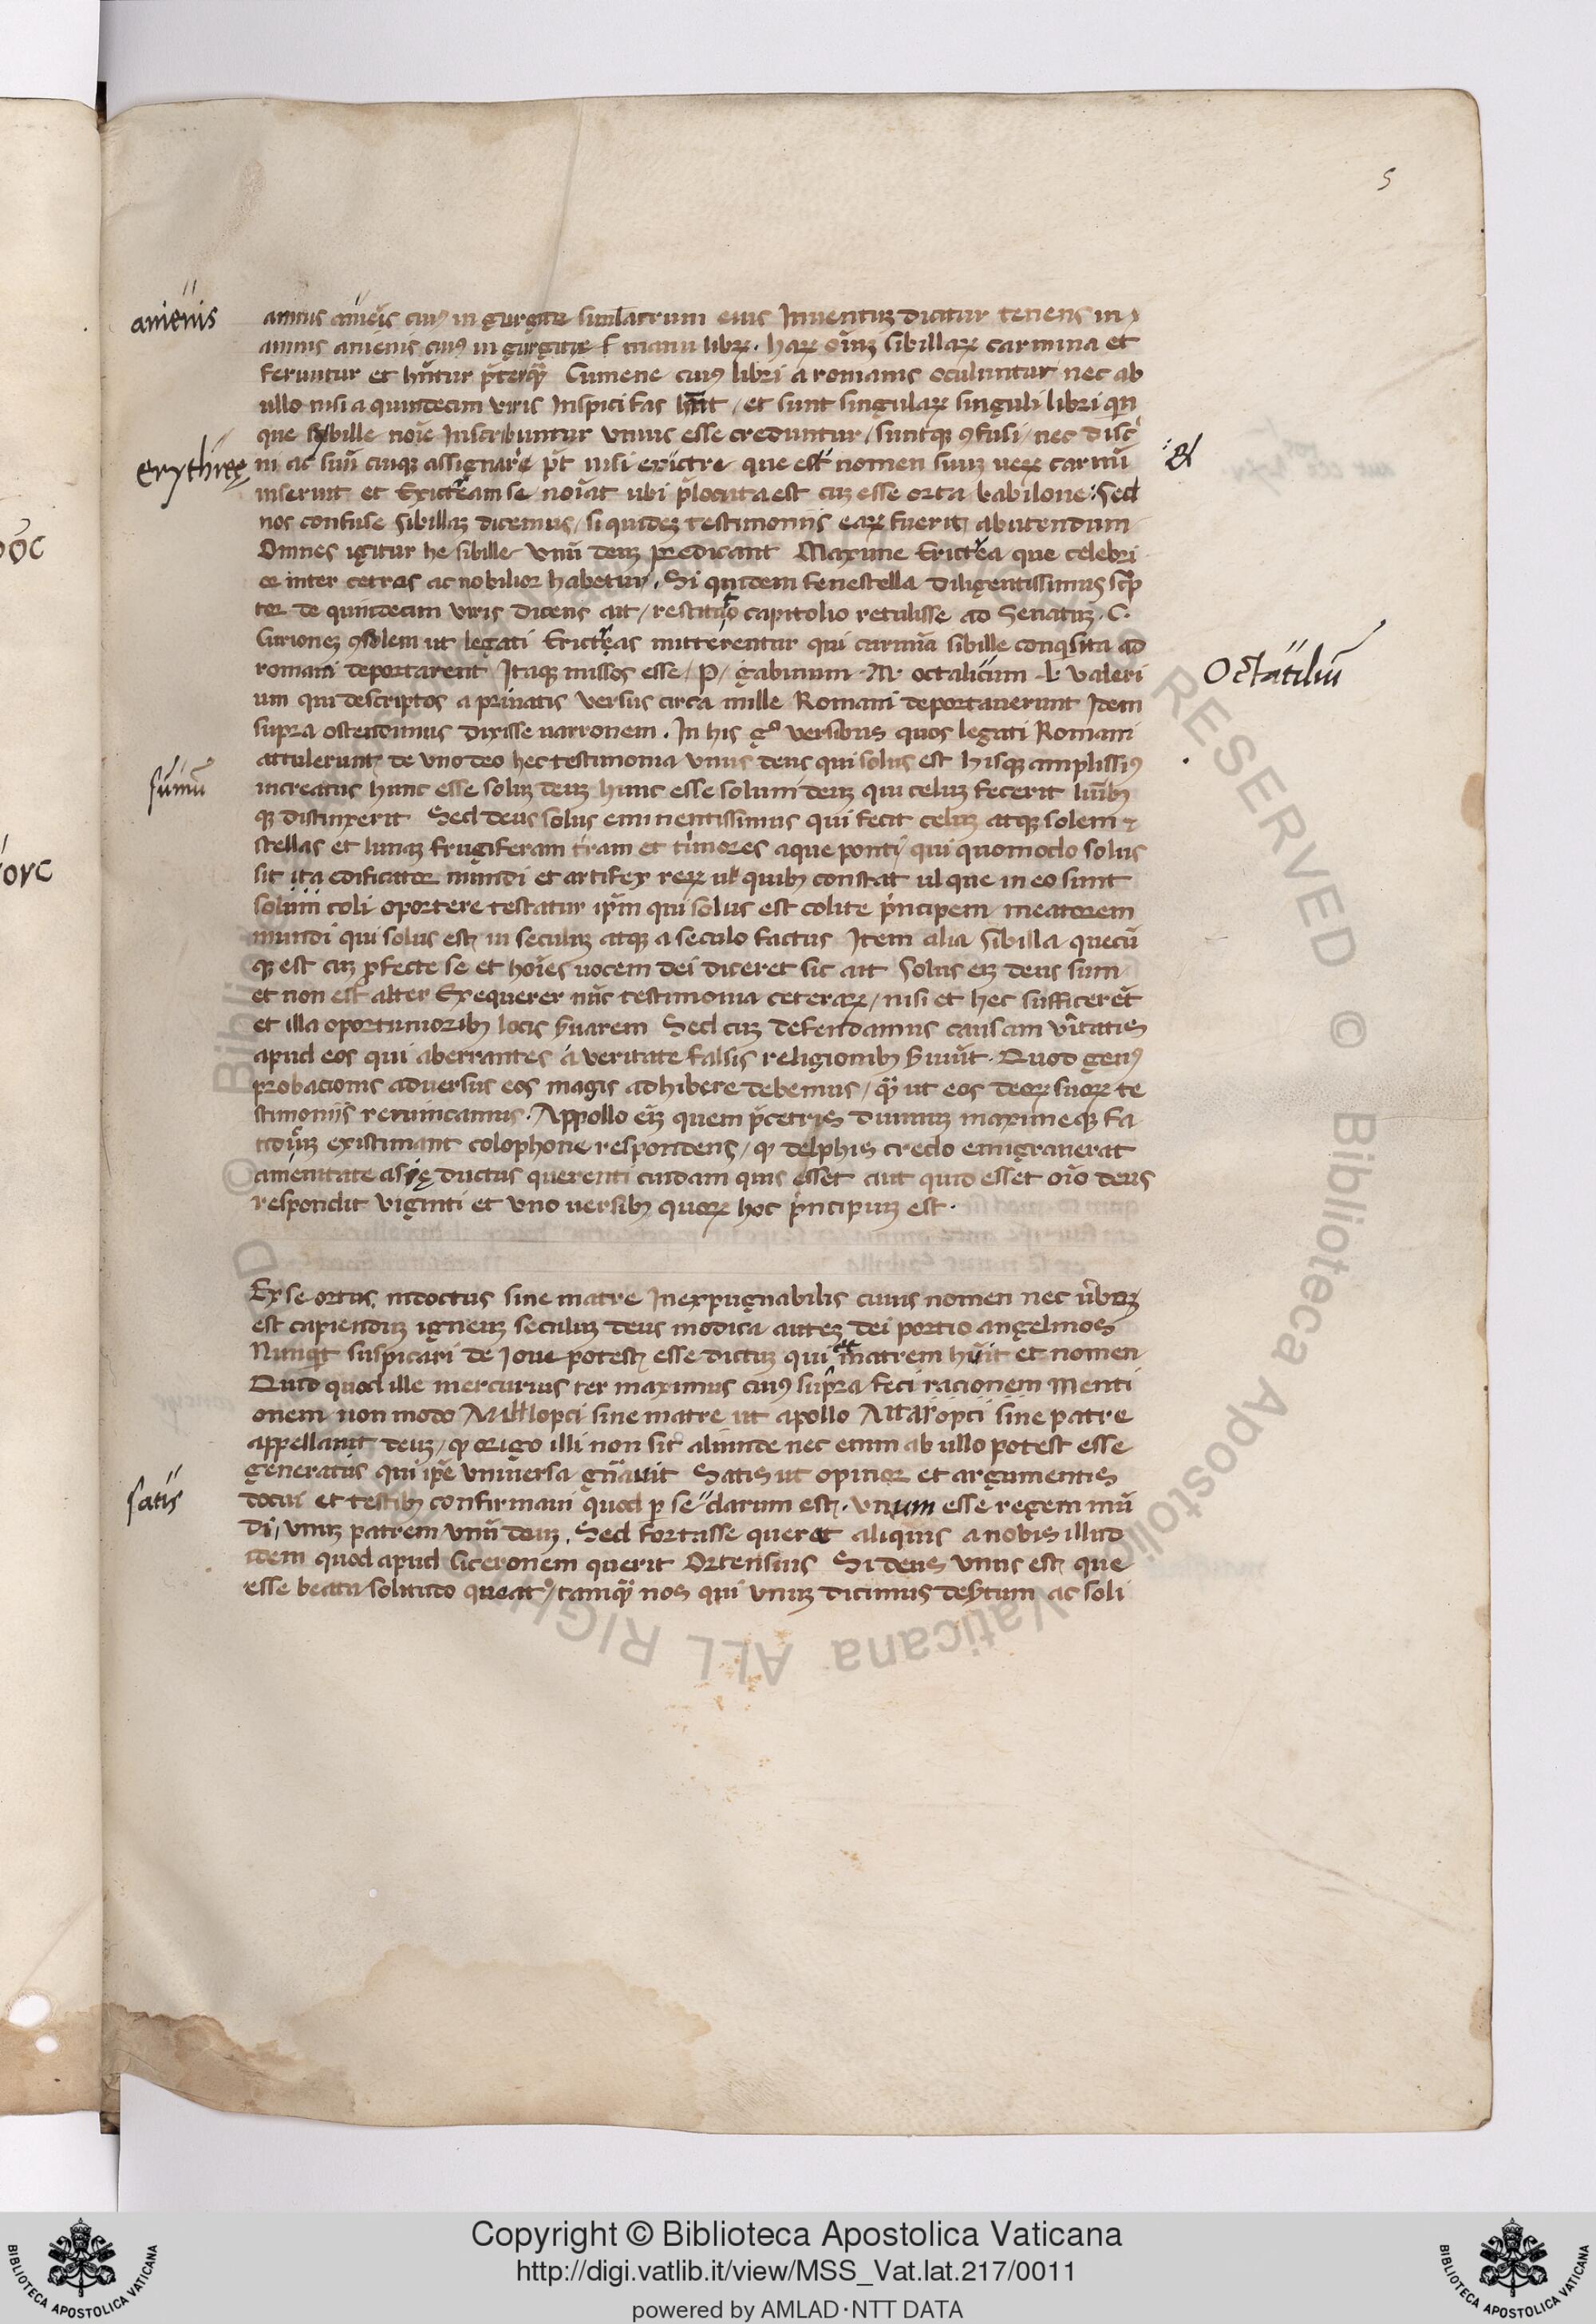 5
amnis amēis cuiꝯ in gurgite simlacrum eius Inuentuꝫ dicitur tenens in
amnis anienis cuiꝯ in gurgitie manu libꝝ. haꝝ oīuꝫ sibillaꝝ carmina et
anienis
feruntur et hn̄tur p̄terqꝫ̄ Cumene cuiꝯ libri a romanis oculuntur nec ab
ullo nisi a quindecim viris Inspici fas et sunt singulaꝝ singuli libri qn
que sybille noīe Inscribuntur vnius esse creduntur / suntqꝫ ꝯfusi / nec disc̄
ni ac suū cuiqꝫ assignare pt̄ nisi erictre que est nomen suuꝫ ueꝝ carmī
erythręę
&
inseruit et Erictream se noīat ubi p̄locuta est cuꝫ esse orta babilone: Sed
nos confuse sibillaꝫ dicemus / si quideꝫ testimoniis eaꝝ fuerit abutendum
Omnes igitur he sibille vnū deuꝫ predicant Maxime Erictrea que celebri
or inter cetras ac nobilior habetur. Si quidem fenestella diligentissimus scp̄
tor de quindecim viris dicens ait / restituto capitolio retulisse ad Senatuꝫ. C.
Curioneꝫ ꝯsolem ut legati Erictreas mitterentur qui carmīa sibille conqsita ad
romam deportarent Itaqꝫ missos esse / P / gabinium. M. octalicum. L. valeri
Octatiliū
um qui descriptos a priuatis versus circa mille Romam deportauerunt Idem
supra ostendimus dixisse uarronem. In his gͦ versibus quos legati Romam
attulerunt de vno deo hec testimonia vnus deus qui solus est hisqꝫ amplissiꝯ
increatus hunc esse soluꝫ deuꝫ hunc esse solum deuꝫ qui celuꝫ fecerit
sūmū
qꝫ distinxerit Sed deus solus eminentissimus qui fecit celuꝫ atqꝫ solem
stellas et lunaꝫ frugiferam tr̄am et timores aque ponti / qui quomodo solus
sit ita edificator mundi et artifex reꝝ ul quibꝫ constat ul que in eo sunt
solum coli oportere testatur ip̄m qui solus est colite p̄ncipem meatorem
mundi qui solus est in seculuꝫ atqꝫ a seculo factus Item alia Sibilla quecū
qꝫ est cuꝫ ꝑfecte se et hoīes uocem dei diceret sic ait Solus eꝫ deus sum
et non est alter Exequerer nūc testimonia ceteraꝝ / nisi et hec sufficeret
et illa oportunioribꝫ locis ẜuarem Sed cuꝫ defendamus causam vītatis
apud eos qui aberrantes a veritate falsis religionibꝫ ẜuiūt. Quod genꝯ
probacionis aduersus eos magis adhibere debemus / qꝫ̄ ut eos deoꝝ suoꝝ te
stimoniis reuincamus. Appollo eꝫ quem p̄cetris diuinuꝫ maximeqꝫ fa
existimant colophone respondens / qꝫ delphis credo emigrauerat
amenitate asię ductus querenti cuidam quis esset aut quid esset oīo deus
respondit viginti et vno uersibꝫ quoꝝ hoc p̄ncipiuꝫ est.
Ex se ortus, indoctus sine matre Inexpugnabilis cuius nomen nec ūboꝫ
est capienduꝫ igneuꝫ seculuꝫ deus modica auteꝫ dei portio angelmos
Nunqt suspicari de Ioue potest esse dictuꝫ qui et matrem huīt et nomen
Quid quod ille mercurius ter maximus cuiꝯ supra feci racionem menti
onem non modo sine matre ut apollo sine patre
appellauit deuꝫ / qꝫ origo illi non sit aliunde nec enim ab ullo potest esse
generatus qui ipē vniuersa gn̄auit Satis ut opinor et argumentis
satis
docui et testibꝫ confirmaui quod ꝑ se clarum est. vnum esse regem mū
di, vnuꝫ patrem vnū deuꝫ. Sed fortasse queret aliquis a nobis illud
idem quod apud siceronem querit Ortensius Si deus vnus est que
esse beata solitudo queat / tamqꝫ̄ nos qui vnuꝫ dicimus deẜtum ac soli
Copyright © Biblioteca Apostolica Vaticana
http://digi.vatlib.it/view/MSS_Vat.lat.217/0011
powered by AMLAD·NTT DATA
BIBLIOTECA APOSTOLICA VATICANA
BIBLIOTECA APOSTOLICA VATICANA